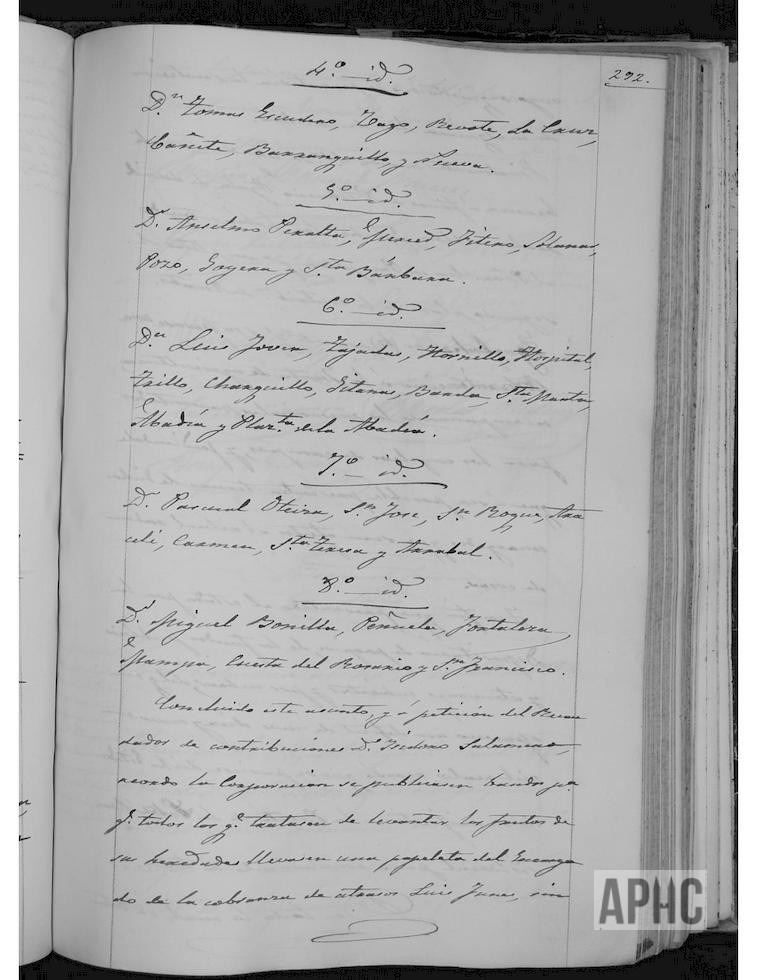 292.
4.º id.
D.n Tomas Escudero, Tago, Revote, La Cruz,
Cañete, Barranquillo, y Nueva.
5.º id.
D.n Anselmo Peralta, Merced, Fitero, Solanas,
Pozo, Gayera y S.ta Bárbara.
6.º id.
D.n Luis Joven, Tajadas, Hornillo, Hospital,
Trillo, Changuillo, Gitanas, Banda, S.ta Marta,
Abadía y Plaz.ta de la Abadía.
7.º id.
D.n Pascual Oteiza, S.n José, S.n Roque, Ara
celi, Carmen, S.ta Teresa y Arrabal.
8.º id.
D.n Miguel Bonilla, Peñuela, Fortaleza,
Mampa, Cuesta del Rosario y S.n Francisco.
Concluido este asunto, y á petición del Recau
dador de contribuciones D.n Isidoro Salamero,
acordo la Corporacion se publicasen bandos pa
q.e todos los q.e tratasen de levantar los frutos de
sus heredades llevasen una papeleta del Encarga
do de la cobranza de atrasos Luis June, sin
APHC